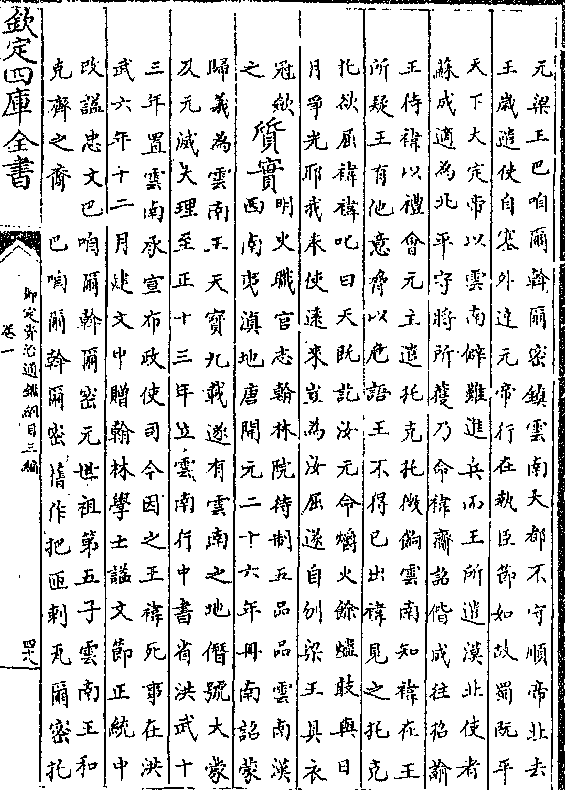 元梁王巴咱爾斡爾密鎮雲南大都不守順帝北去
王歲遣使自塞外達元帝行在執臣節如故蜀既平
天下大定帝以雲南僻難進兵而王所遣漠北使者
蘇成適為北平守將所獲乃命褘齎詔偕成往招諭
王待褘以禮會元主遣托克托徴餉雲南知褘在王
所疑王有他意脅以危語王不得已出褘見之托克
托欲屈褘褘叱曰天既訖汝元命爝火餘燼敢與日
月爭光耶我奉使遠來豈為汝屈遂自刎梁王具衣
冠斂之
質實 明史職官志翰林院待制五品 雲南漢西南夷滇地唐開元二十六年冊南詔蒙
歸義為雲南王天寳九載遂有雲南之地僭號大蒙
及元滅大理至正十三年立雲南行中書省洪武十
三年置雲南承宣布政使司今因之王褘死事在洪
武六年十二月建文中贈翰林學士諡文節正統中
改諡忠文巴咱爾斡爾密元世祖第五子雲南王和
克齊之裔 巴咱爾斡爾密舊作把匝剌瓦爾密托
欽定四庫全書
御定資治通鑑綱目三編
卷一
四八